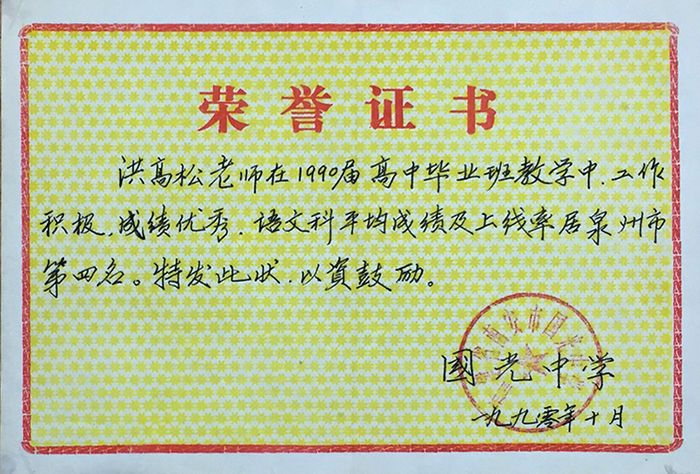 荣誉证书
洪高松老师在1990届高中毕业班教学中,工作
积极,成绩优秀,语文科平均成绩及上线率居泉州市
第四名。特发此状,以资鼓励。
南安市国光中学
國光中学
一九九零年十月